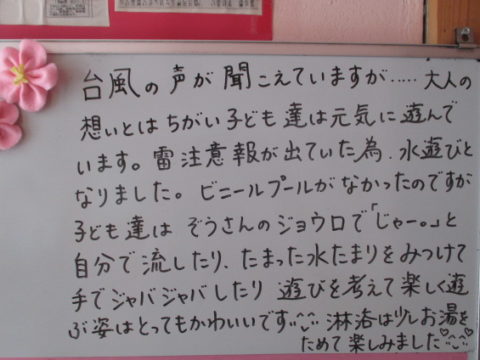 台風の声が聞こえていますが.....大人の
想いとはちがい子ども達は元気に遊んで
います。雷注意報が出ていた為、水遊びと
なりました。ビニールプールがなかったのですが
子ども達は ぞうさんのジョウロで「じゃー。」と
自分で流したり、たまった水たまりをみつけて
手でジャバジャバしたり 遊びを考えて楽しく遊
ぶ姿はとってもかわいいです 淋浴は少しお湯を
ためて楽しみました